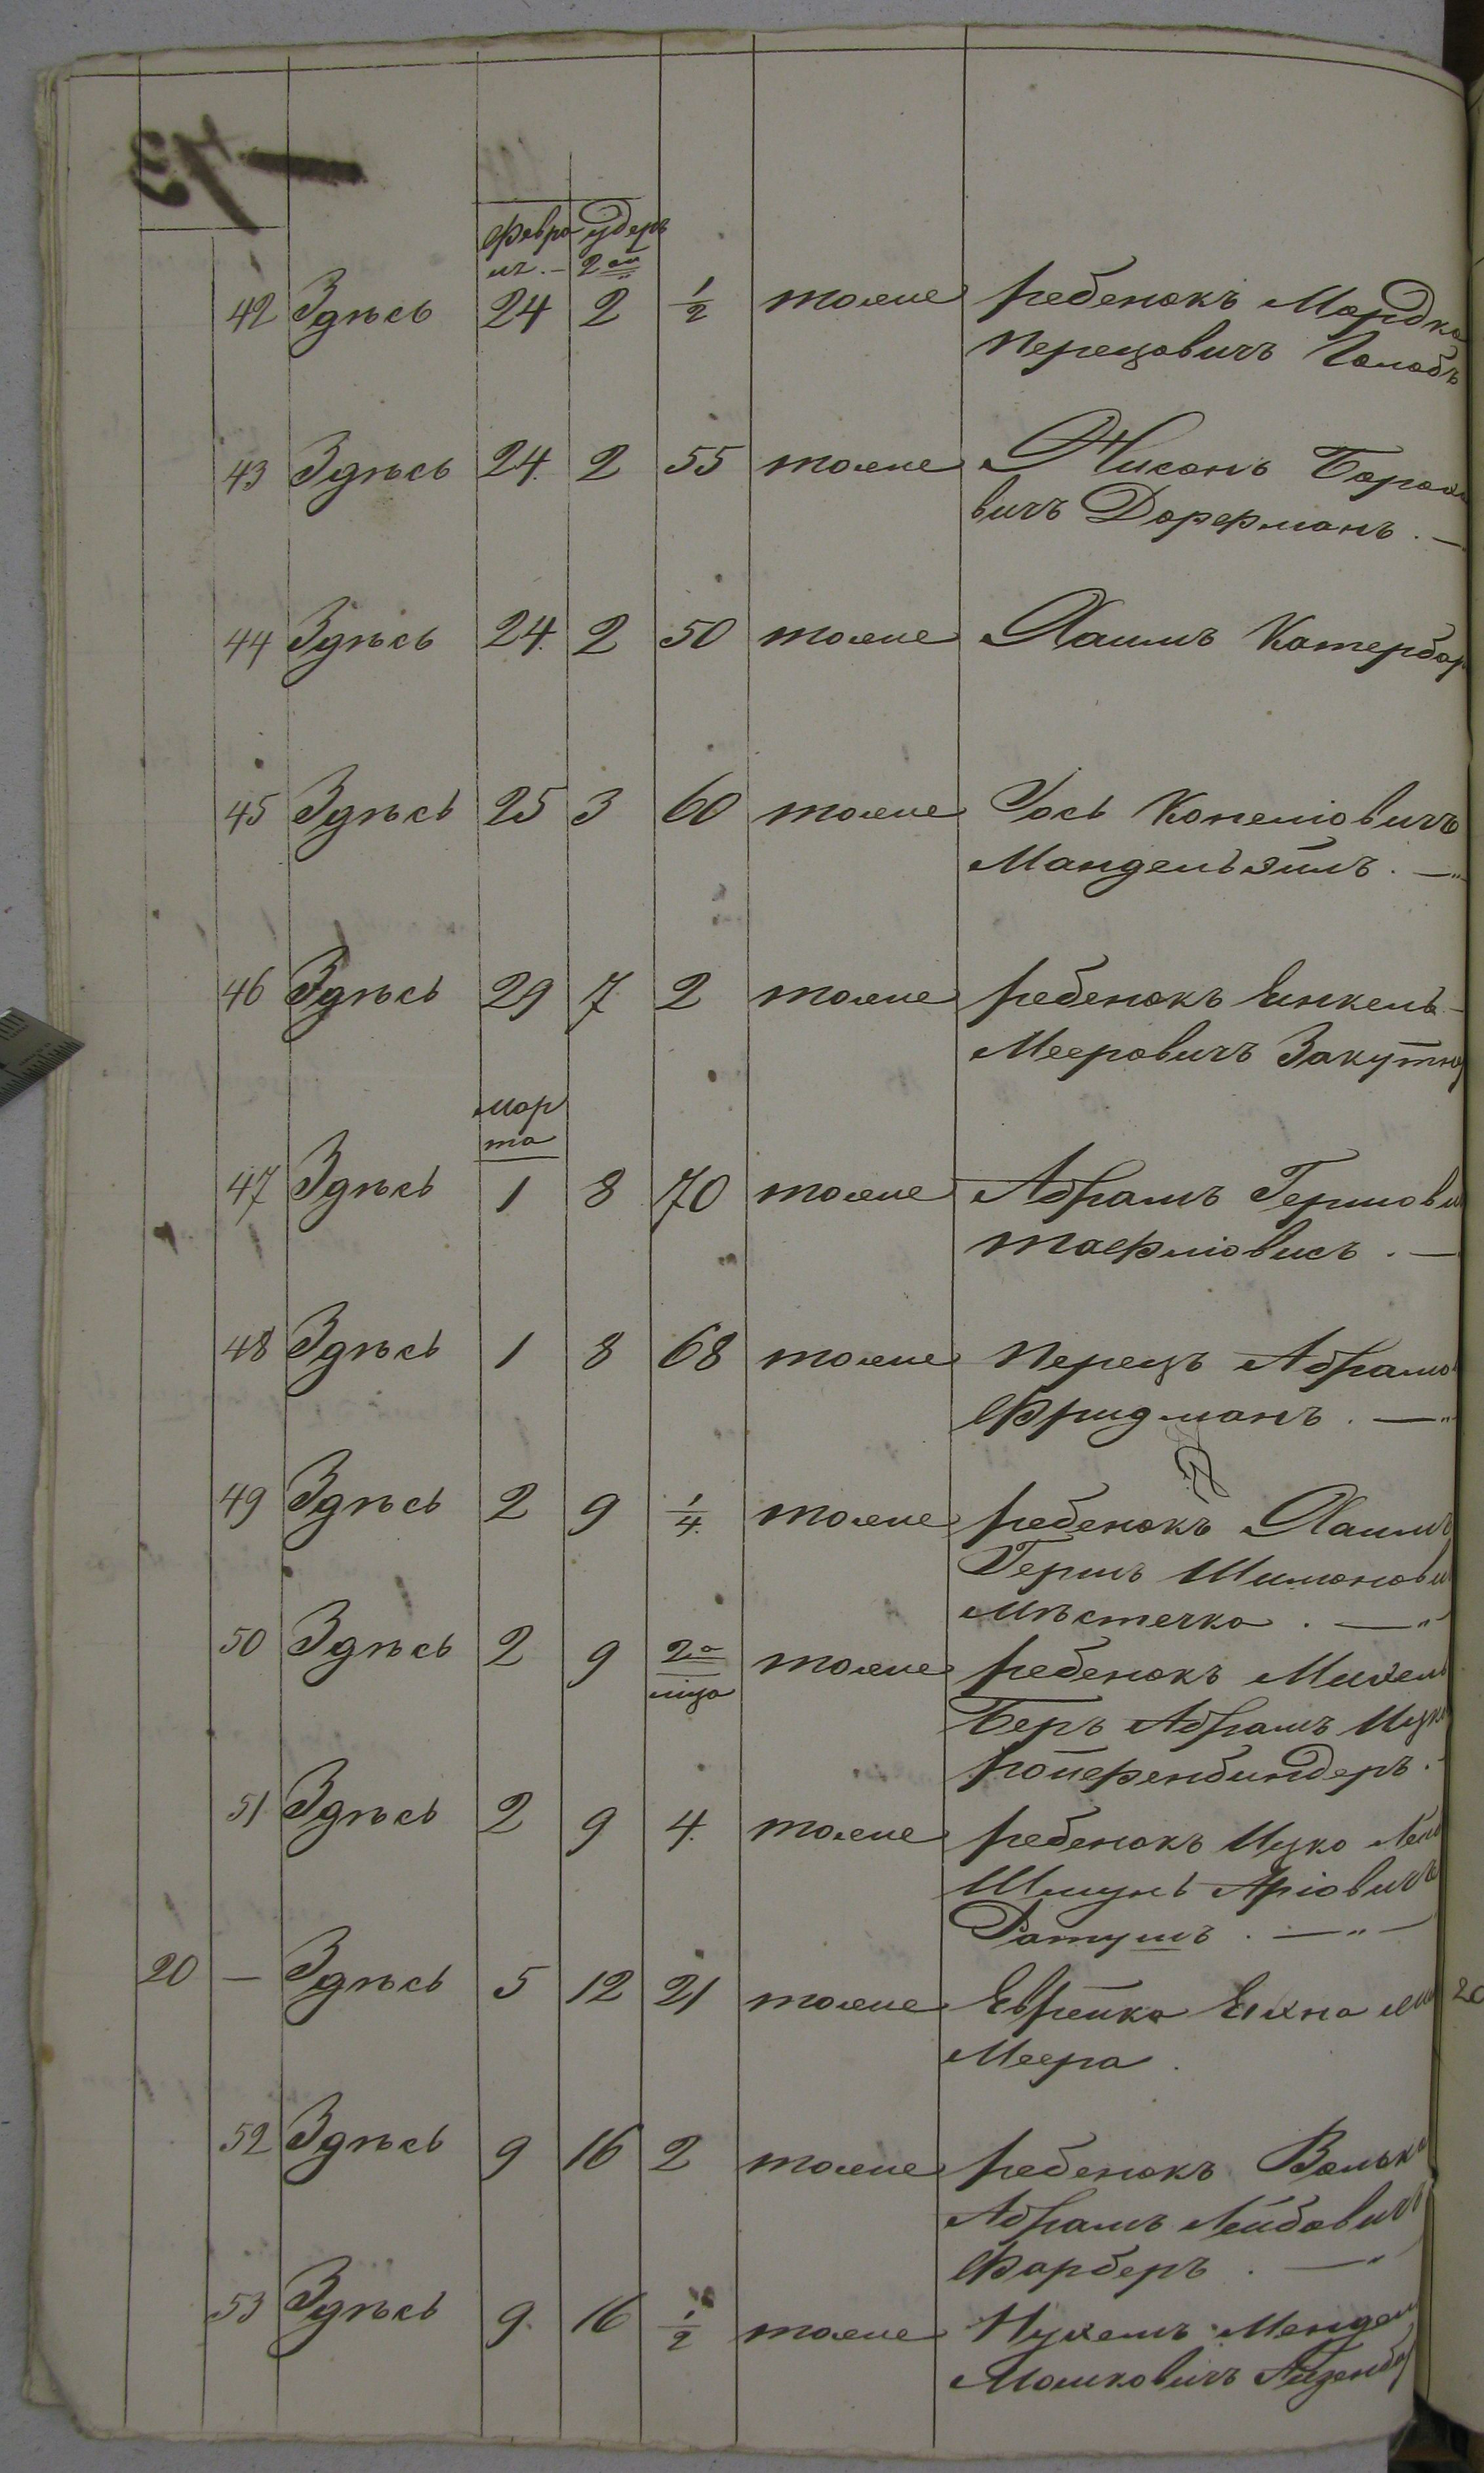 73
Февра удеръ
ля. 2ой
42 Здѣсь 24 2 1/2 тоже ребенокъ Мордко
Перецовичъ Голобъ
43 Здѣсь 24. 2 55 тоже Нисонъ Борохо
вичъ Дорфманъ. —
44 Здѣсь 24. 2 50 тоже Хаимъ Катербар
45 Здѣсь 25 3 60 тоже Іось Копеліовичъ
Мандельзилъ. —„
46 Здѣсь 29 7 2 тоже ребенокъ Енкель
Мееровичъ Закутн
Мар
та
47 Здѣсь 1 8 70 тоже Абрамъ Гершови
48 Здѣсь 1 8 68 тоже Перецъ Абрамо
Фридманъ. —„
49 Здѣсь 2 9 1/4. тоже ребенокъ Хаимъ
Гершъ Шимонови
Мѣстечко. —„
50 Здѣсь 2 9 2а тоже ребенокъ Михель
мца
Беръ Абрамъ Ицко
51 Здѣсь 2 9 4. тоже ребенокъ Ицко Лейб
Шмунь Аріовичъ
Ратушъ. —„—
20 — Здѣсь 5 12 21 тоже Еврейка Ейхна
Меера.
52 Здѣсь 9 16 2 тоже ребенокъ Волько
Абрамъ Лейбовичъ
Фарберъ. —„
53 Здѣсь 9. 16 1/2 тоже Нухемъ Мендел
Мошковичъ Айзенбе